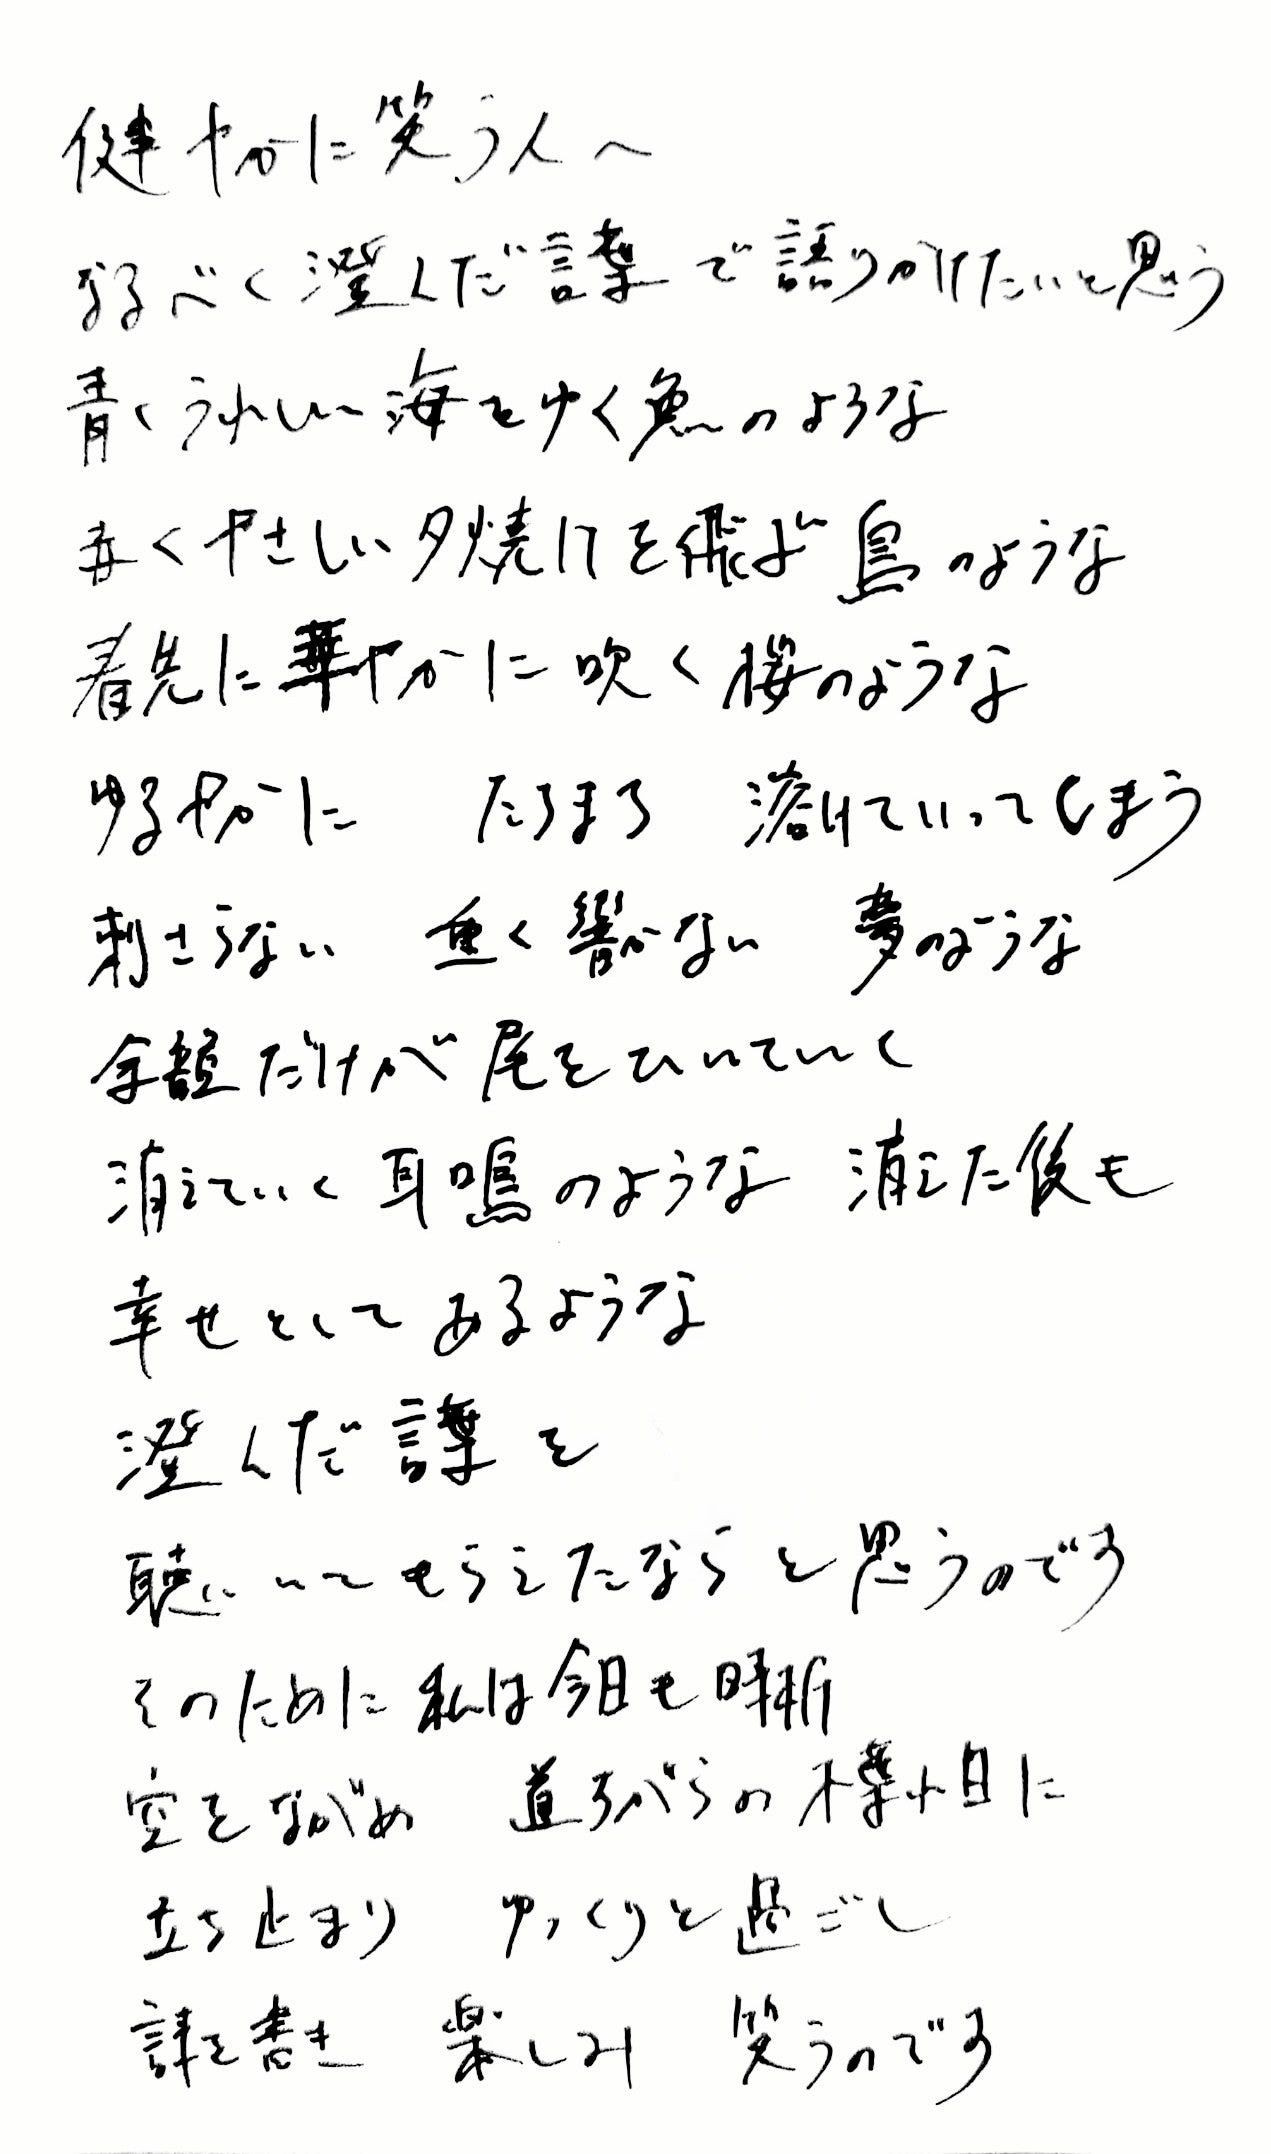 健やかに笑う人へ
なるべく澄んだ言葉で語りかけたいと思う
青くうれしい海をゆく魚のような
赤くやさしい夕焼けを飛ぶ鳥のような
春先に華やかに吹く桜のような
ゆるやかに たちまち 溶けていってしまう
刺さらない 重く響かない 夢のような
余韻だけが尾をひいていく
消えていく耳鳴のような 消えた後も
幸せとしてあるような
澄んだ言葉を
聴いてもらえたなら と思うのです
そのために私は今日も時折
空をながめ 道ちがらの木葉小日に
立ち止まり ゆっくりと過ごし
詩を書き 楽しみ 笑うのです